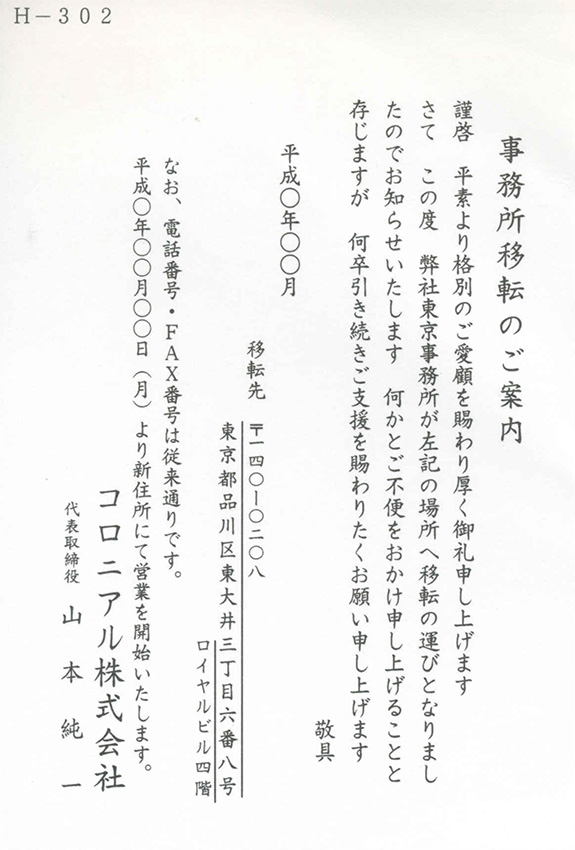 H－302
事務所移転のご案内
謹啓　平素より格別のご愛顧を賜わり厚く御礼申し上げます
さて　この度　弊社東京事務所が左記の場所へ移転の運びとなりまし
たのでお知らせいたします　何かとご不便をおかけ申し上げることと
存じますが　何卒引き続きご支援を賜わりたくお願い申し上げます
敬具
平成〇年〇〇月
移転先　〒一四〇ー〇二〇八
東京都品川区東大井三丁目六番八号
ロイヤルビル四階
なお、電話番号・FAX番号は従来通りです。
平成〇年〇〇月〇〇日（月）より新住所にて営業を開始いたします。
コロニアル株式会社
代表取締役　山本純一